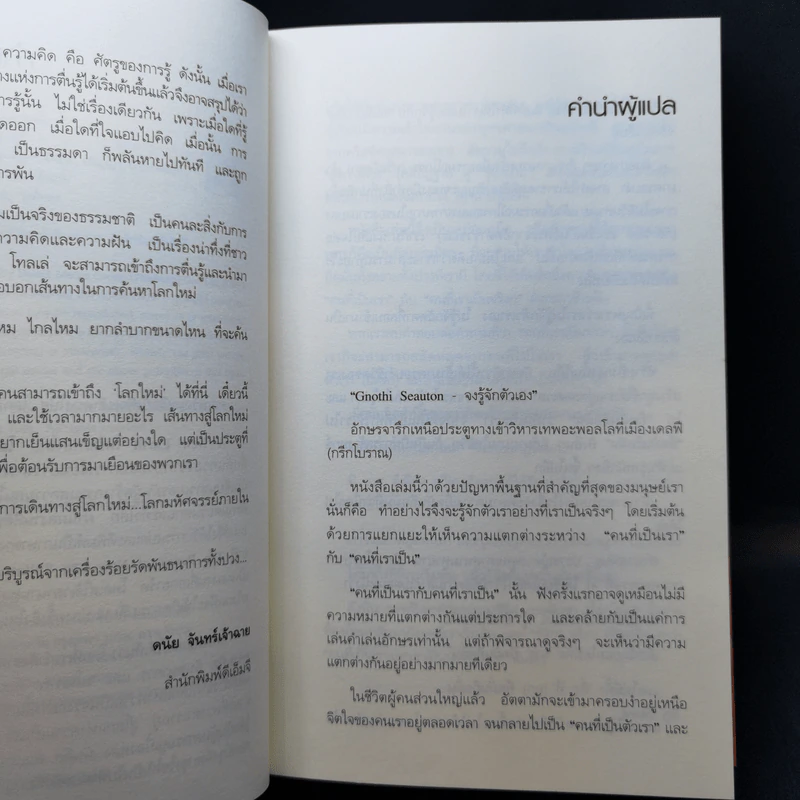 ความคิด คือ ศัตรูของการรู้ ดังนั้น เมื่อเรา
แห่งการตื่นรู้ได้เริ่มต้นขึ้นแล้วจึงอาจสรุปได้ว่า
ารรู้นั้น ไม่ใช่เรื่องเดียวกัน เพราะเมื่อใดที่รู้
ดออก เมื่อใดที่ใจแอบไปคิด เมื่อนั้น การ
เป็นธรรมดา ก็พลันหายไปทันที และถูก
ารพัน
มเป็นจริงของธรรมชาติ เป็นคนละสิ่งกับการ
ความคิดและความฝัน เป็นเรื่องน่าทึ่งที่ชาว
โทลเล่ จะสามารถเข้าถึงการตื่นรู้และนำมา
อบอกเส้นทางในการค้นหาโลกใหม่
หม ไกลไหม ยากลำบากขนาดไหน ที่จะค้น
คนสามารถเข้าถึง ‘โลกใหม่’ ได้ที่นี่ เดี๋ยวนี้
และใช้เวลามากมายอะไร เส้นทางสู่โลกใหม่
ยากเย็นแสนเข็ญแต่อย่างใด แต่เป็นประตูที่
พื่อต้อนรับการมาเยือนของพวกเรา
การเดินทางสู่โลกใหม่...โลกมหัศจรรย์ภายใน
บริบูรณ์จากเครื่องร้อยรัดพันธนาการทั้งปวง...
ดนัย จันทร์เจ้าฉาย
สำนักพิมพ์ดีเอ็มจี
คำนำผู้แปล
“Gnothi Seauton - จงรู้จักตัวเอง”
อักษรจารึกเหนือประตูทางเข้าวิหารเทพอะพอลโลที่เมืองเดลฟี
(กรีกโบราณ)
หนังสือเล่มนี้ว่าด้วยปัญหาพื้นฐานที่สำคัญที่สุดของมนุษย์เรา
นั่นก็คือ ทำอย่างไรจึงจะรู้จักตัวเราอย่างที่เราเป็นจริงๆ โดยเริ่มต้น
ด้วยการแยกแยะให้เห็นความแตกต่างระหว่าง “คนที่เป็นเรา”
กับ “คนที่เราเป็น”
“คนที่เป็นเรากับคนที่เราเป็น” นั้น ฟังครั้งแรกอาจดูเหมือนไม่มี
ความหมายที่แตกต่างกันแต่ประการใด และคล้ายกับเป็นแค่การ
เล่นคำเล่นอักษรเท่านั้น แต่ถ้าพิจารณาดูจริงๆ จะเห็นว่ามีความ
แตกต่างกันอยู่อย่างมากมายทีเดียว
ในชีวิตผู้คนส่วนใหญ่แล้ว อัตตามักจะเข้ามาครอบงำอยู่เหนือ
จิตใจของคนเราอยู่ตลอดเวลา จนกลายไปเป็น “คนที่เป็นตัวเรา” และ